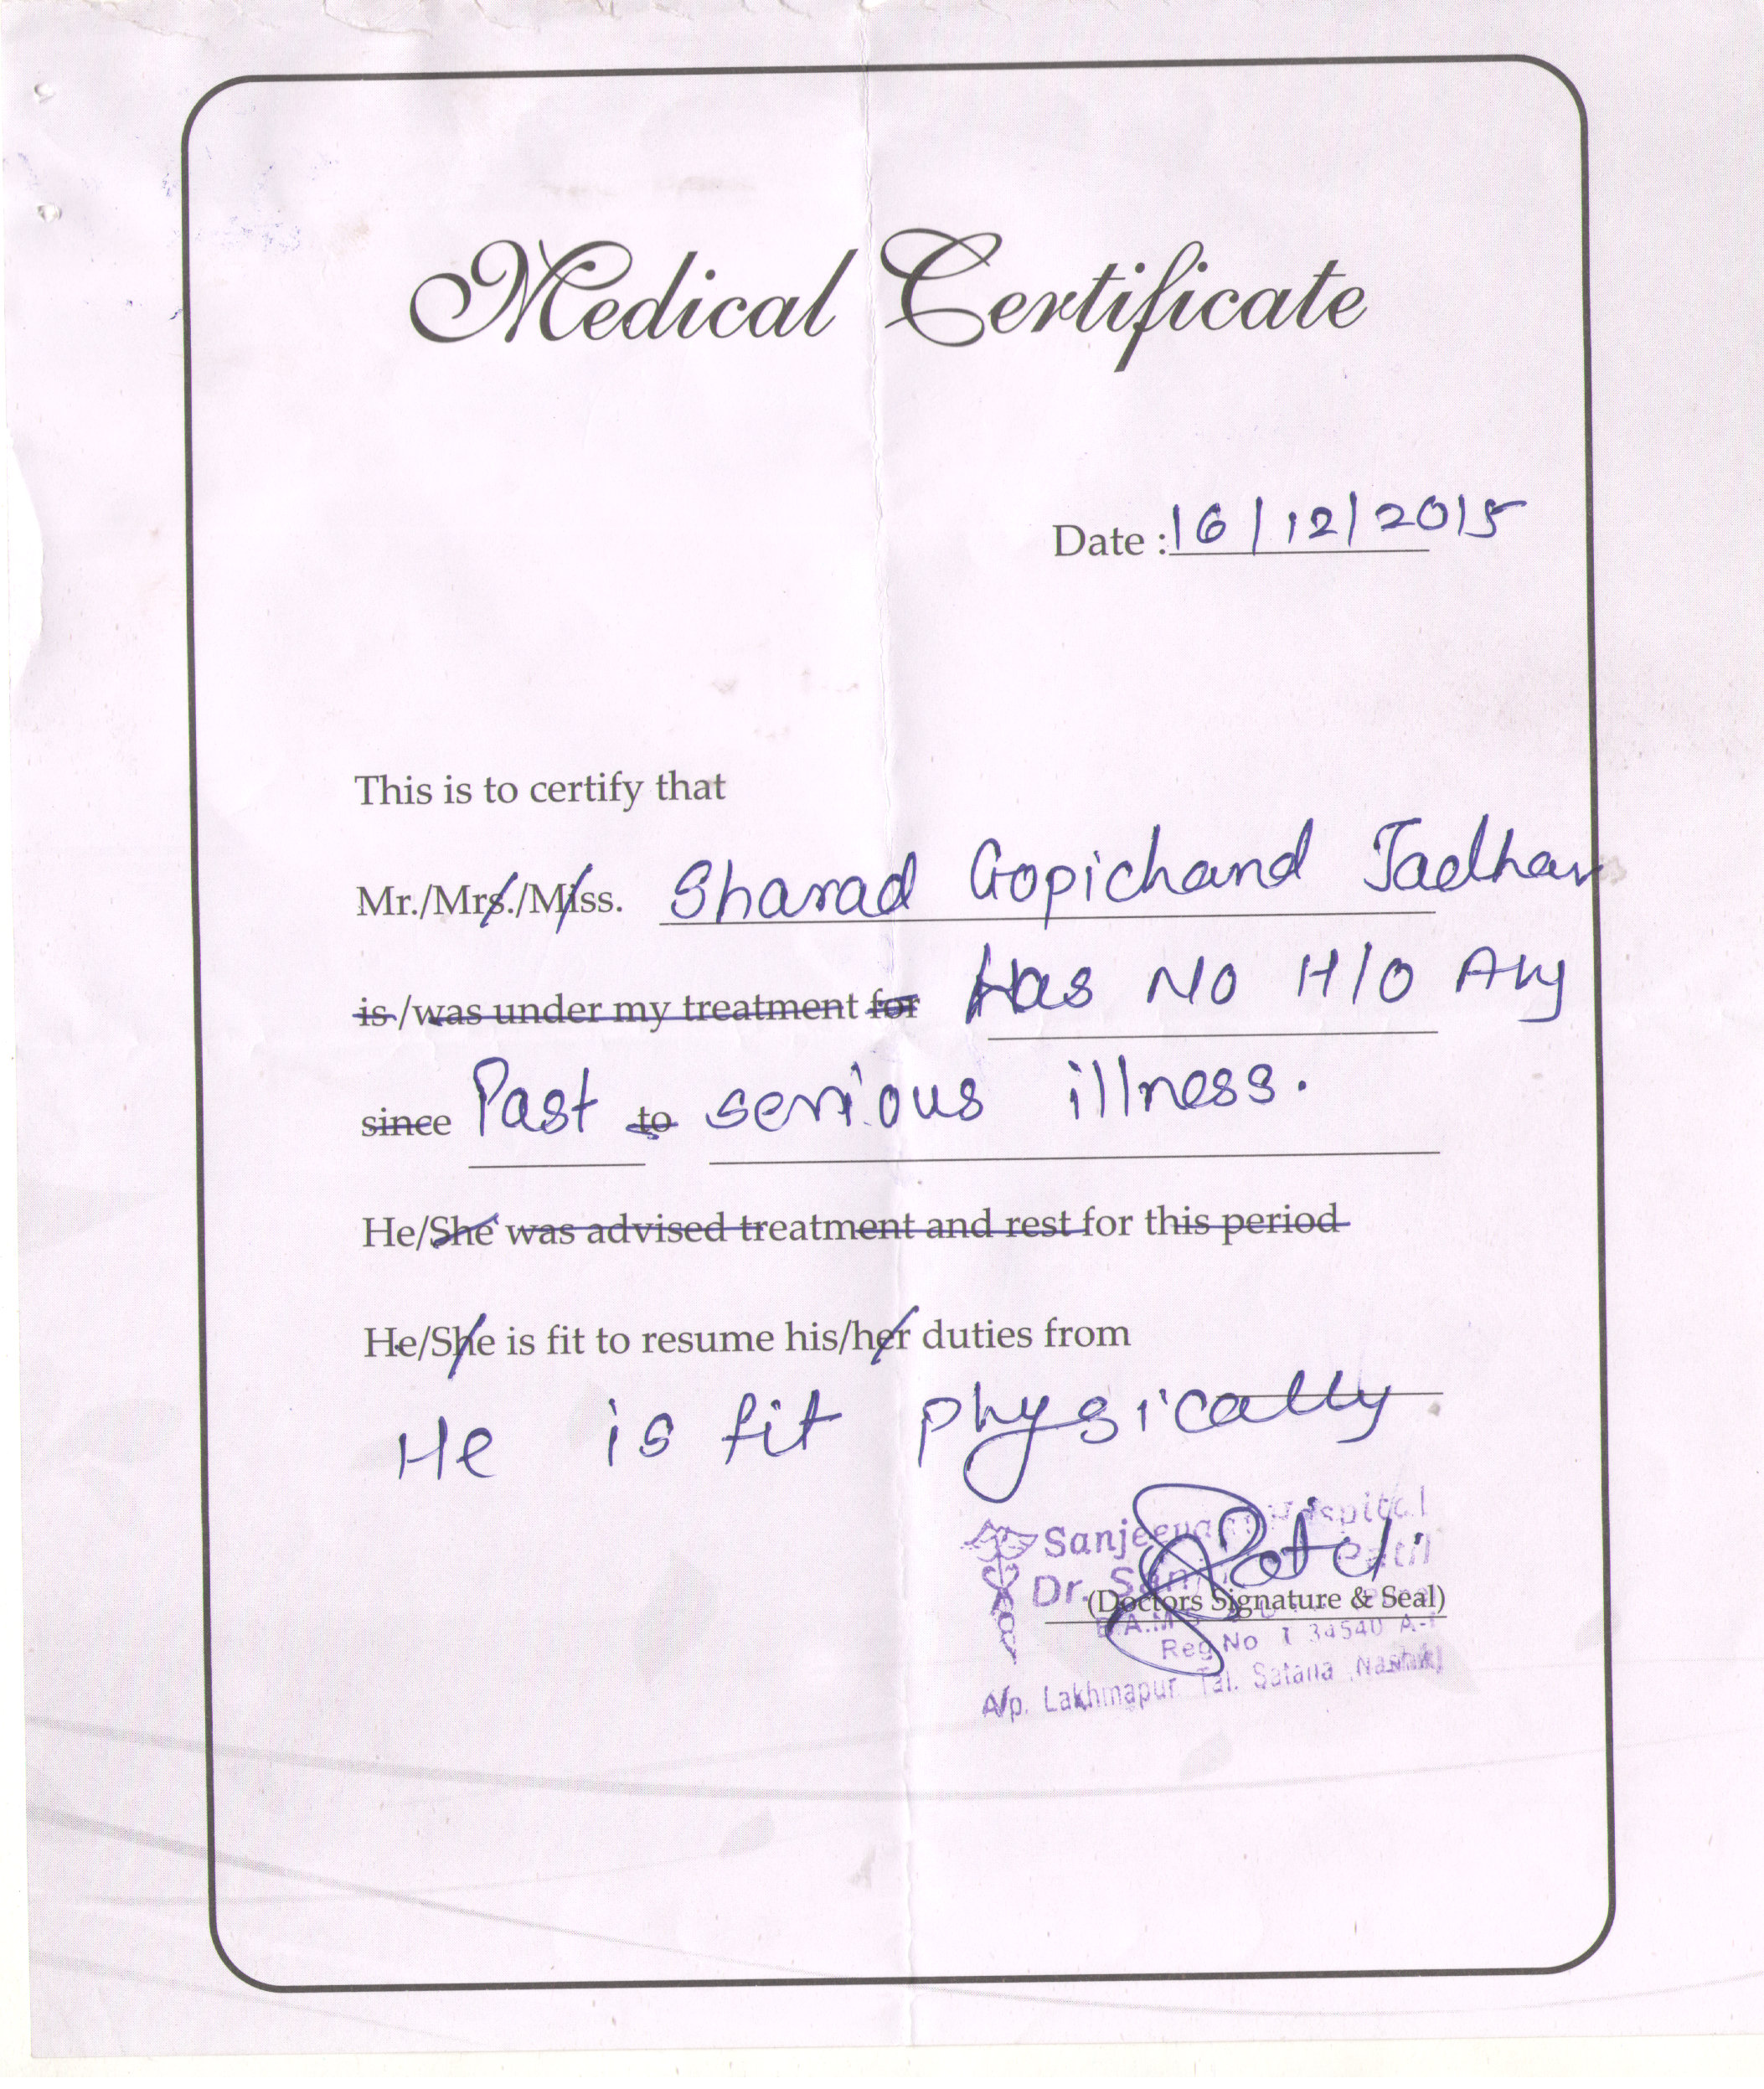 Medical Certificate
Date : 16/12/2015
This is to certify that
Mr./Mrs./Miss. Sharad Gopichand Jadhav
is /was under my treatment for Has No H/O Any
since Past to serious illness.
He/She was advised treatment and rest for this period
He/She is fit to resume his/her duties from
He is fit physically
Hospital
Dr.
(Doctors Signature & Seal)
Reg No
A/p. Lakhmapur Tal. Satana Nashik